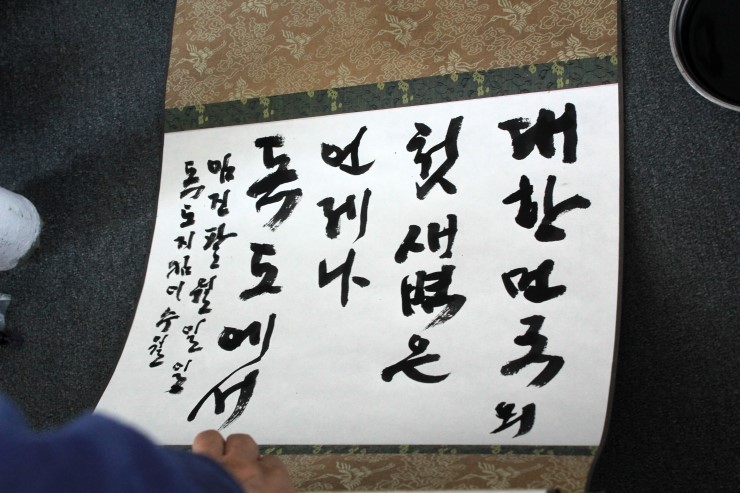 대한민국의
첫 새벽은
언제나
독도에서
임진팔월일일
독도지킴이 수월